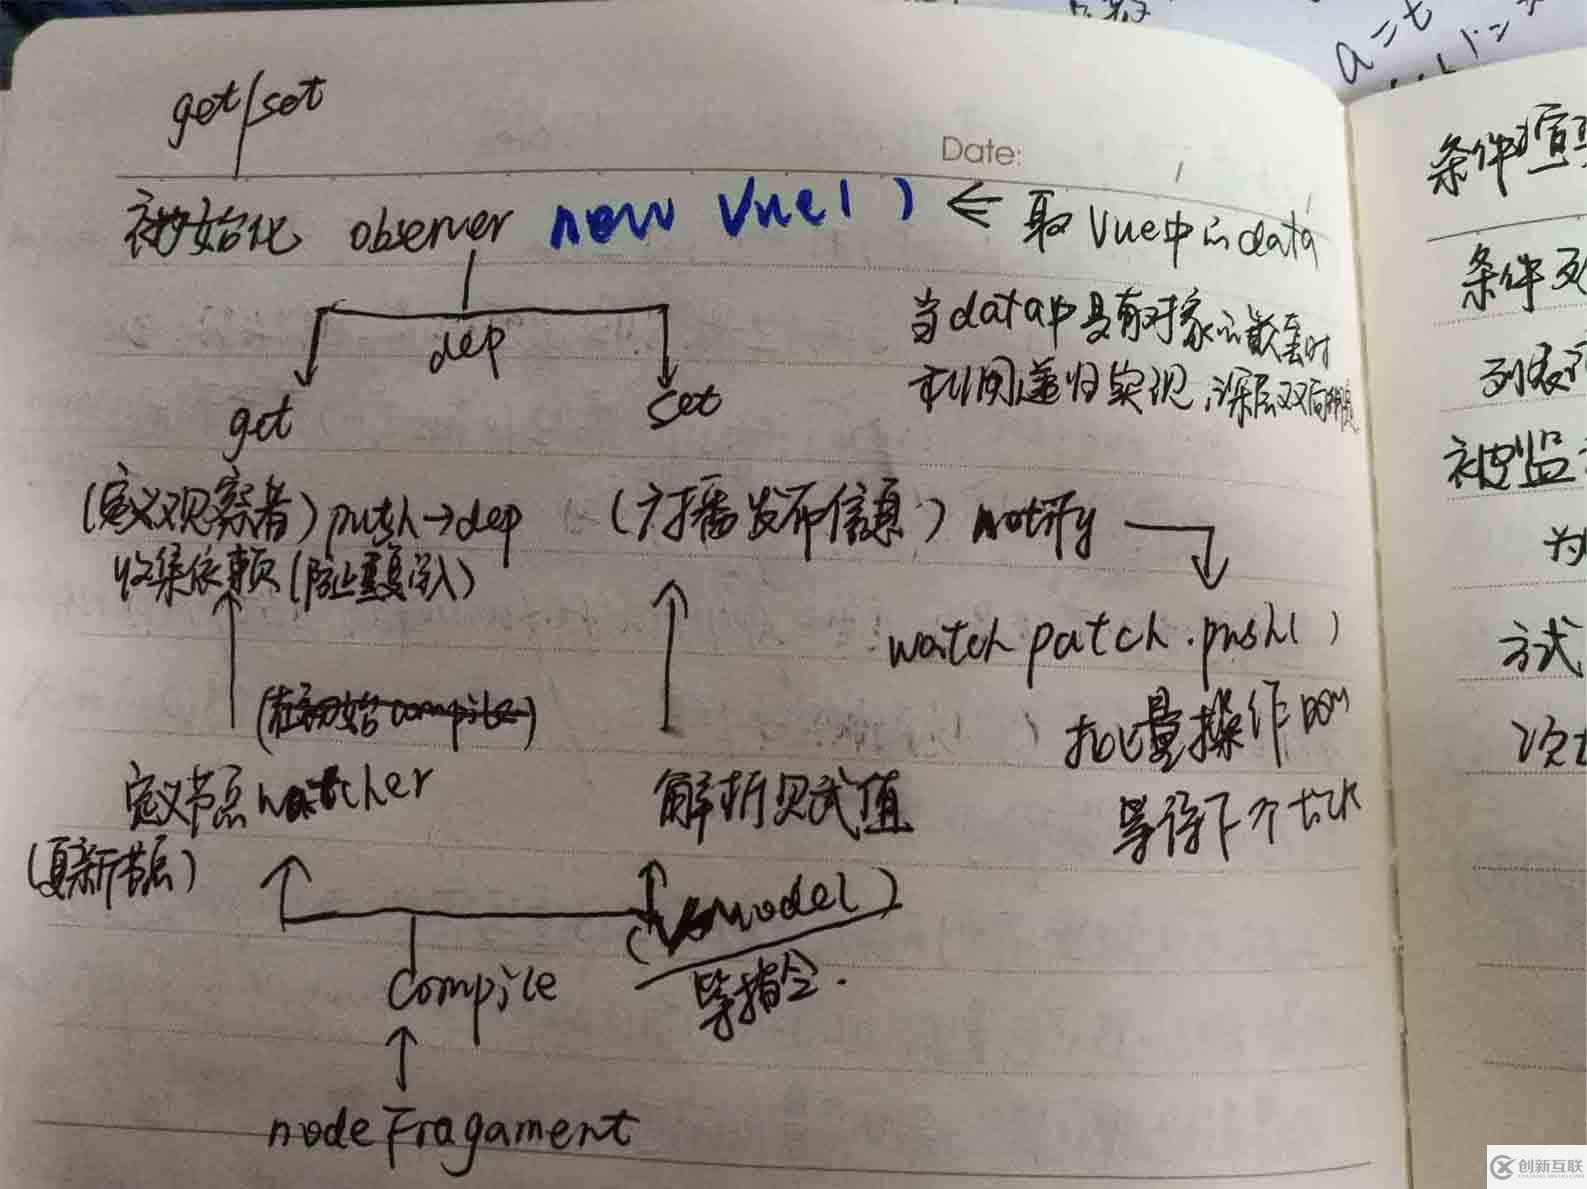 get/set
Date:
初始化 observer new Vue( ) ← 取Vue中的data
当data中具有对象的嵌套时
利用递归实现,深层双向绑定
dep
get
set
(定义观察者) push→dep
(广播发布信息) notify
收集依赖(防止重复添入)
watch patch.push( )
(在初始 compile)
批量操作DOM
定义节点watcher
解析及赋值
等待下个tick
(更新节点)
(v-model)
compile
等指令.
nodeFragament
a=t
条件
条件
列表
被监
为
方式
次
创新互联